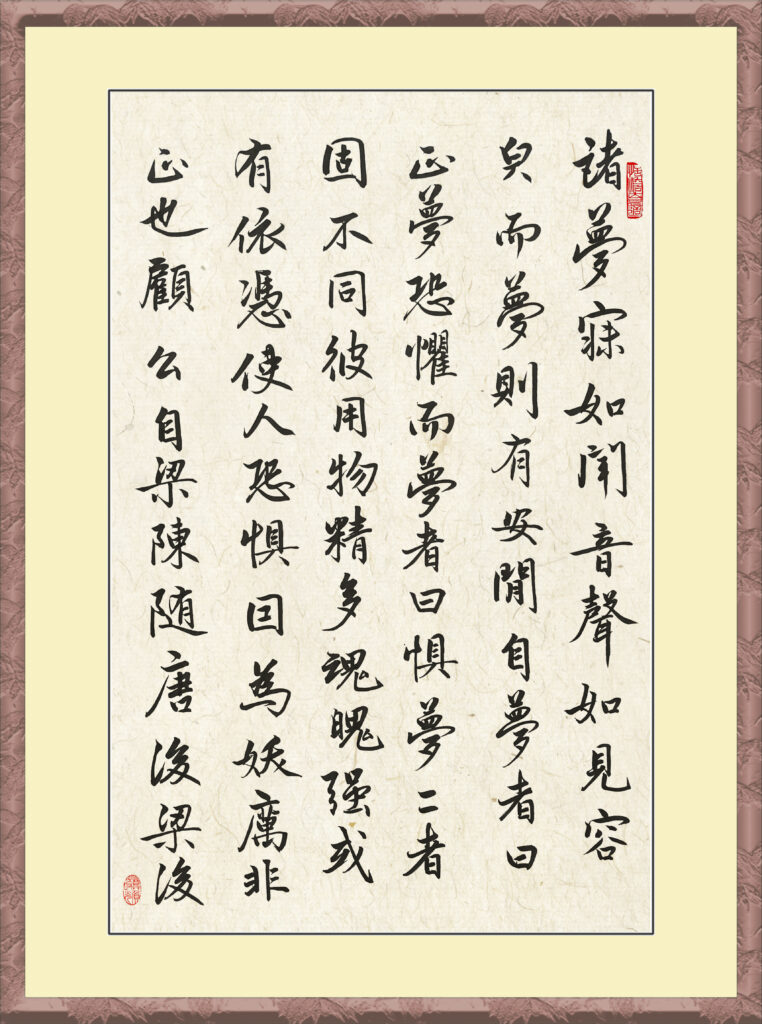 諸夢寐如聞音聲如見容
皃而夢則有安閒自夢者曰
正夢恐懼而夢者曰惧夢二者
固不同彼用物精多魂魄强或
有依憑使人恐惧囙為妖厲非
正也顧公自梁陳随唐後梁後